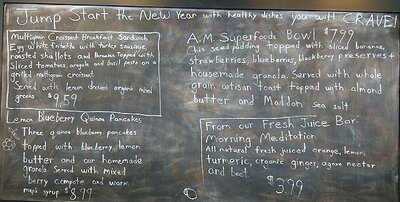 Jump Start the New Year with healthy dishes you will CRAVE!
Multigrain Croissant Breakfast Sandwich
Egg white frittata with turkey sausage,
roasted shallots and Topped with
sliced tomatoes, arugula and basil pesto on a
grilled multigrain croissant
Served with lemon dressed organic mixed
greens $9.59
Lemon Blueberry Quinoa Pancakes
Three quinoa blueberry pancakes
topped with blueberry, lemon
butter and our homemade
granola. Served with mixed
berry compote and warm
maple syrup $8.99
A.M. Superfoods Bowl $7.99
Chia seed pudding topped with sliced bananas,
strawberries, blueberries, blackberry preserves +
housemade granola. Served with whole
grain artisan toast topped with almond
butter and Maldon sea salt
From our Fresh Juice Bar:
Morning Meditation
All natural fresh juiced orange, lemon,
turmeric, organic ginger, agave nectar
and beet
$3.99